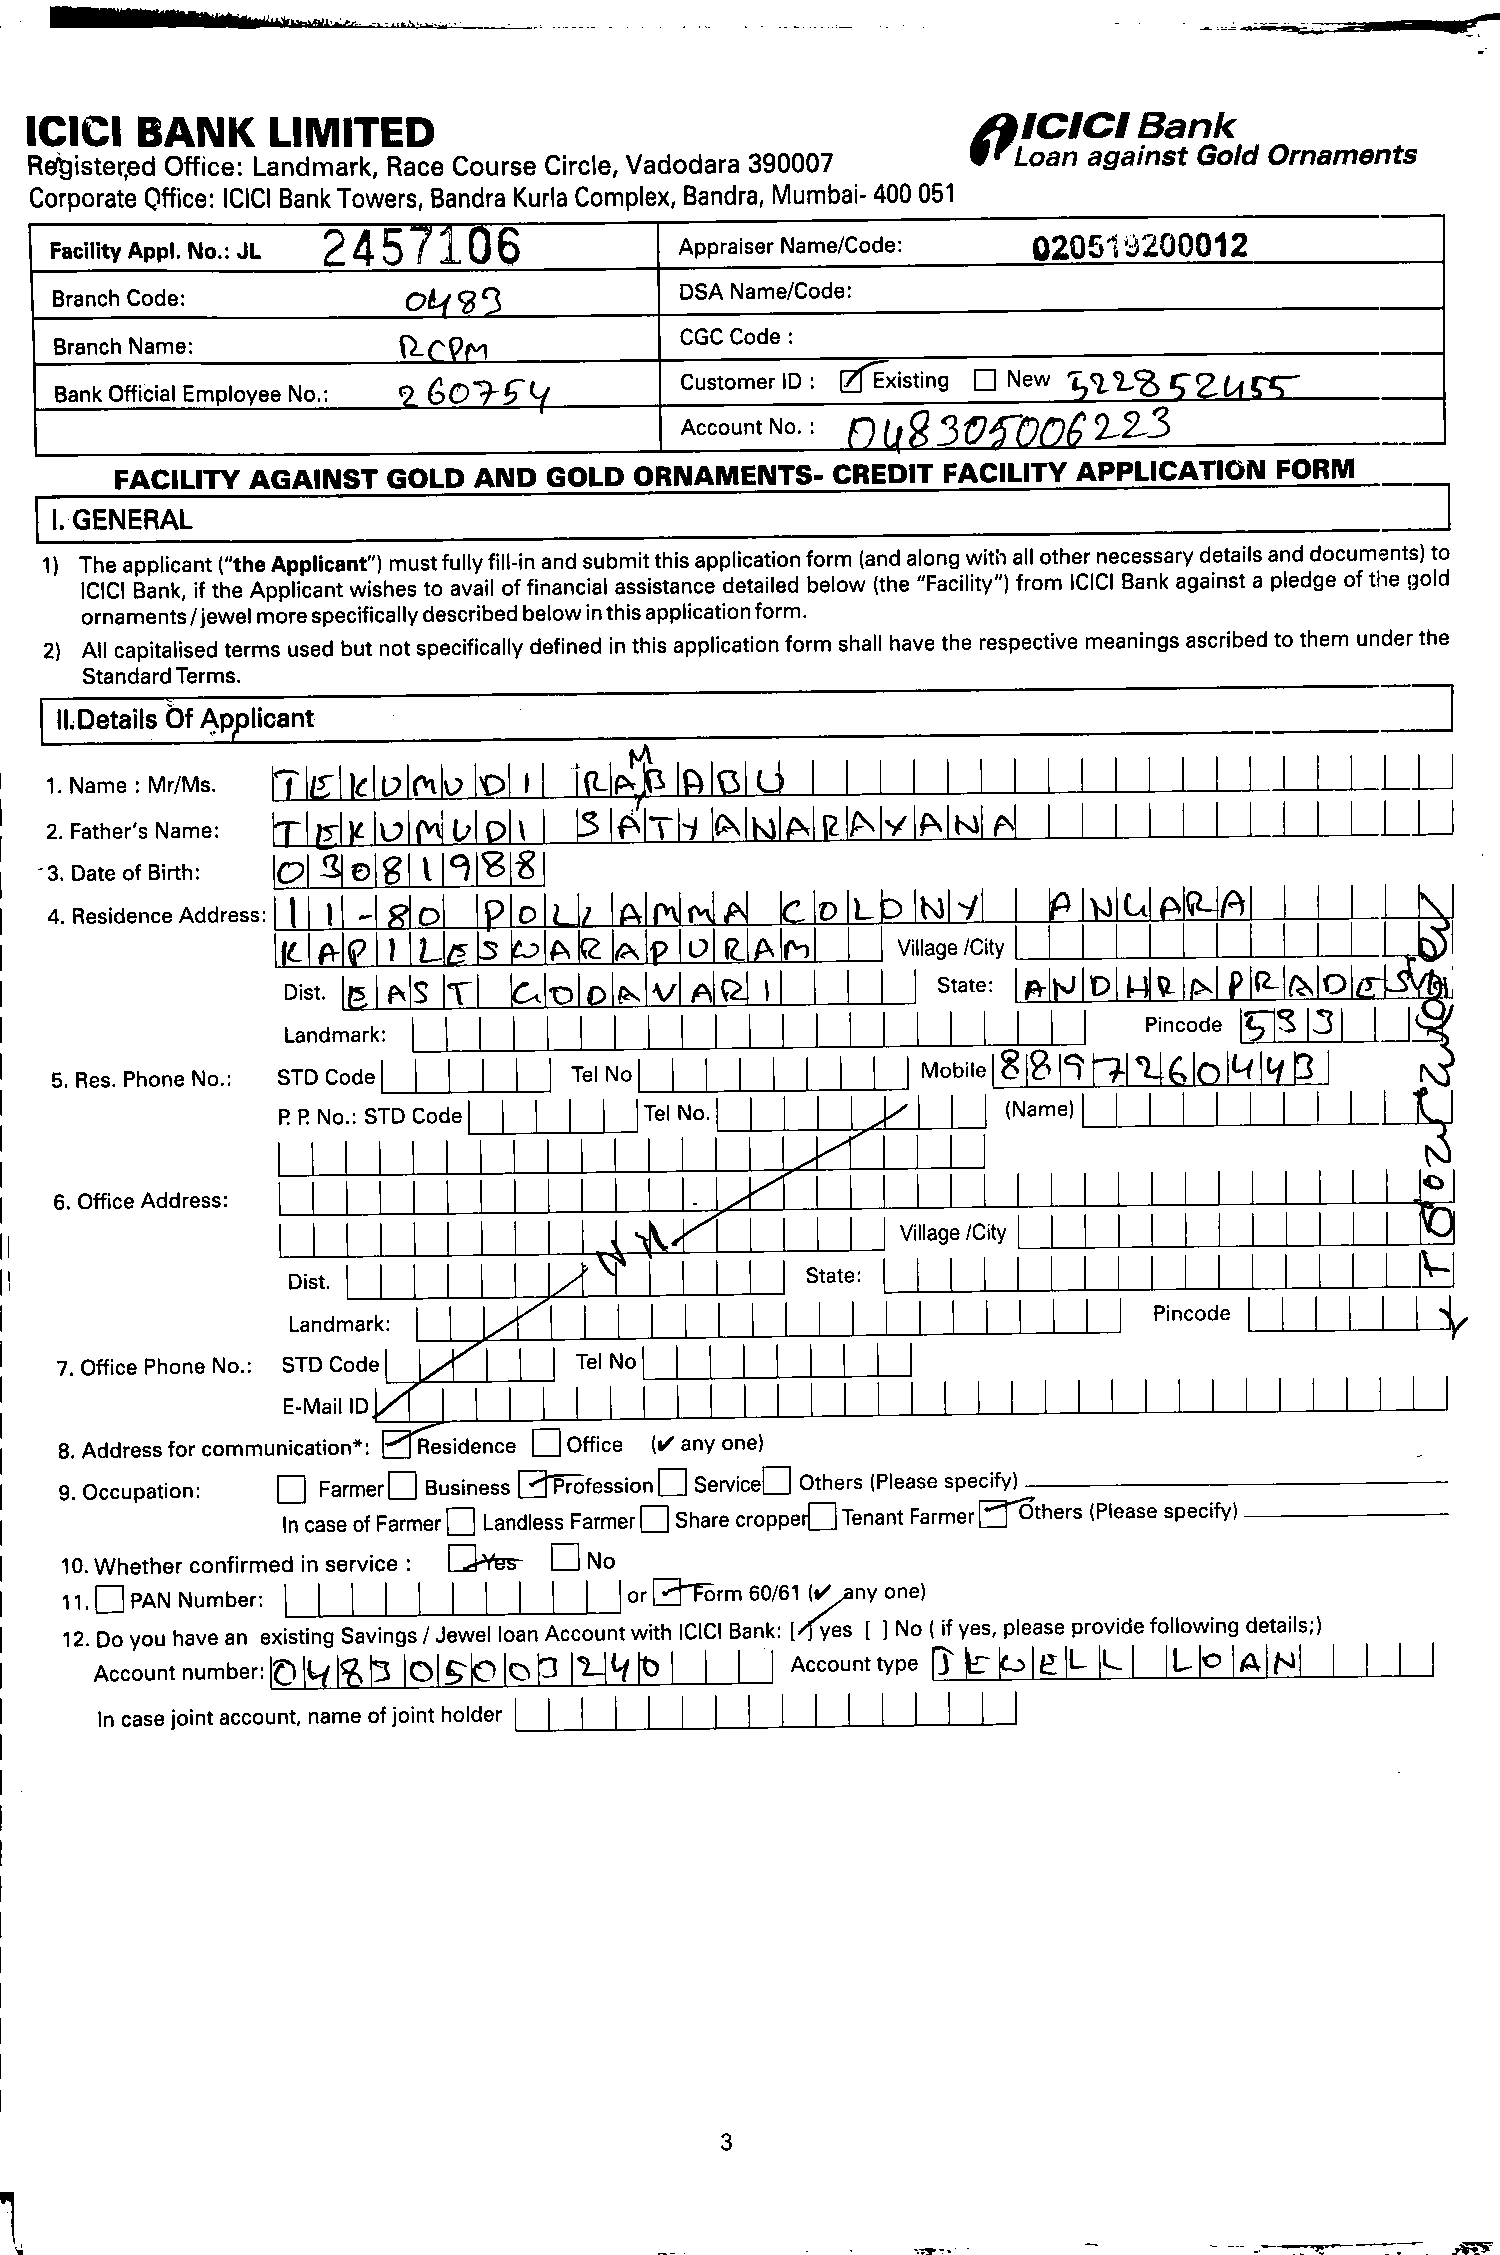 ICICI BANK LIMITED
Registered Office: Landmark, Race Course Circle, Vadodara 390007
Corporate Office: ICICI Bank Towers, Bandra Kurla Complex, Bandra, Mumbai- 400 051
ICICI Bank
Loan against Gold Ornaments
Facility Appl. No.: JL 2457106
Appraiser Name/Code: 020519200012
Branch Code: 0483
DSA Name/Code:
Branch Name: RCPM
CGC Code :
Bank Official Employee No.: 260754
Customer ID : Existing New 522852455
Account No. : 048305006223
FACILITY AGAINST GOLD AND GOLD ORNAMENTS- CREDIT FACILITY APPLICATION FORM
I. GENERAL
1) The applicant ("the Applicant") must fully fill-in and submit this application form (and along with all other necessary details and documents) to
ICICI Bank, if the Applicant wishes to avail of financial assistance detailed below (the "Facility") from ICICI Bank against a pledge of the gold
ornaments / jewel more specifically described below in this application form.
2) All capitalised terms used but not specifically defined in this application form shall have the respective meanings ascribed to them under the
Standard Terms.
II. Details Of Applicant
1. Name : Mr/Ms. TEKUMUDI RAMBABU
2. Father's Name: TEKUMUDI SATYANARAYANA
3. Date of Birth: 03081988
4. Residence Address: 11-80 POLLAMMA COLONY ANGARA
KAPILESWARAPURAM Village /City
Dist. EAST GODAVARI State: ANDHRAPRADESH
Landmark: Pincode 533
5. Res. Phone No.: STD Code Tel No Mobile 8897260443
P. P. No.: STD Code Tel No. (Name)
6. Office Address:
Village /City
Dist. State:
Landmark: Pincode
7. Office Phone No.: STD Code Tel No
E-Mail ID
8. Address for communication*: Residence Office (✔ any one)
9. Occupation: Farmer Business Profession Service Others (Please specify)
In case of Farmer Landless Farmer Share cropper Tenant Farmer Others (Please specify)
10. Whether confirmed in service : Yes No
11. PAN Number: or Form 60/61 (✔ any one)
12. Do you have an existing Savings / Jewel loan Account with ICICI Bank: [✓] yes [ ] No ( if yes, please provide following details;)
Account number: 048305003240 Account type JEWELL LOAN
In case joint account, name of joint holder
3